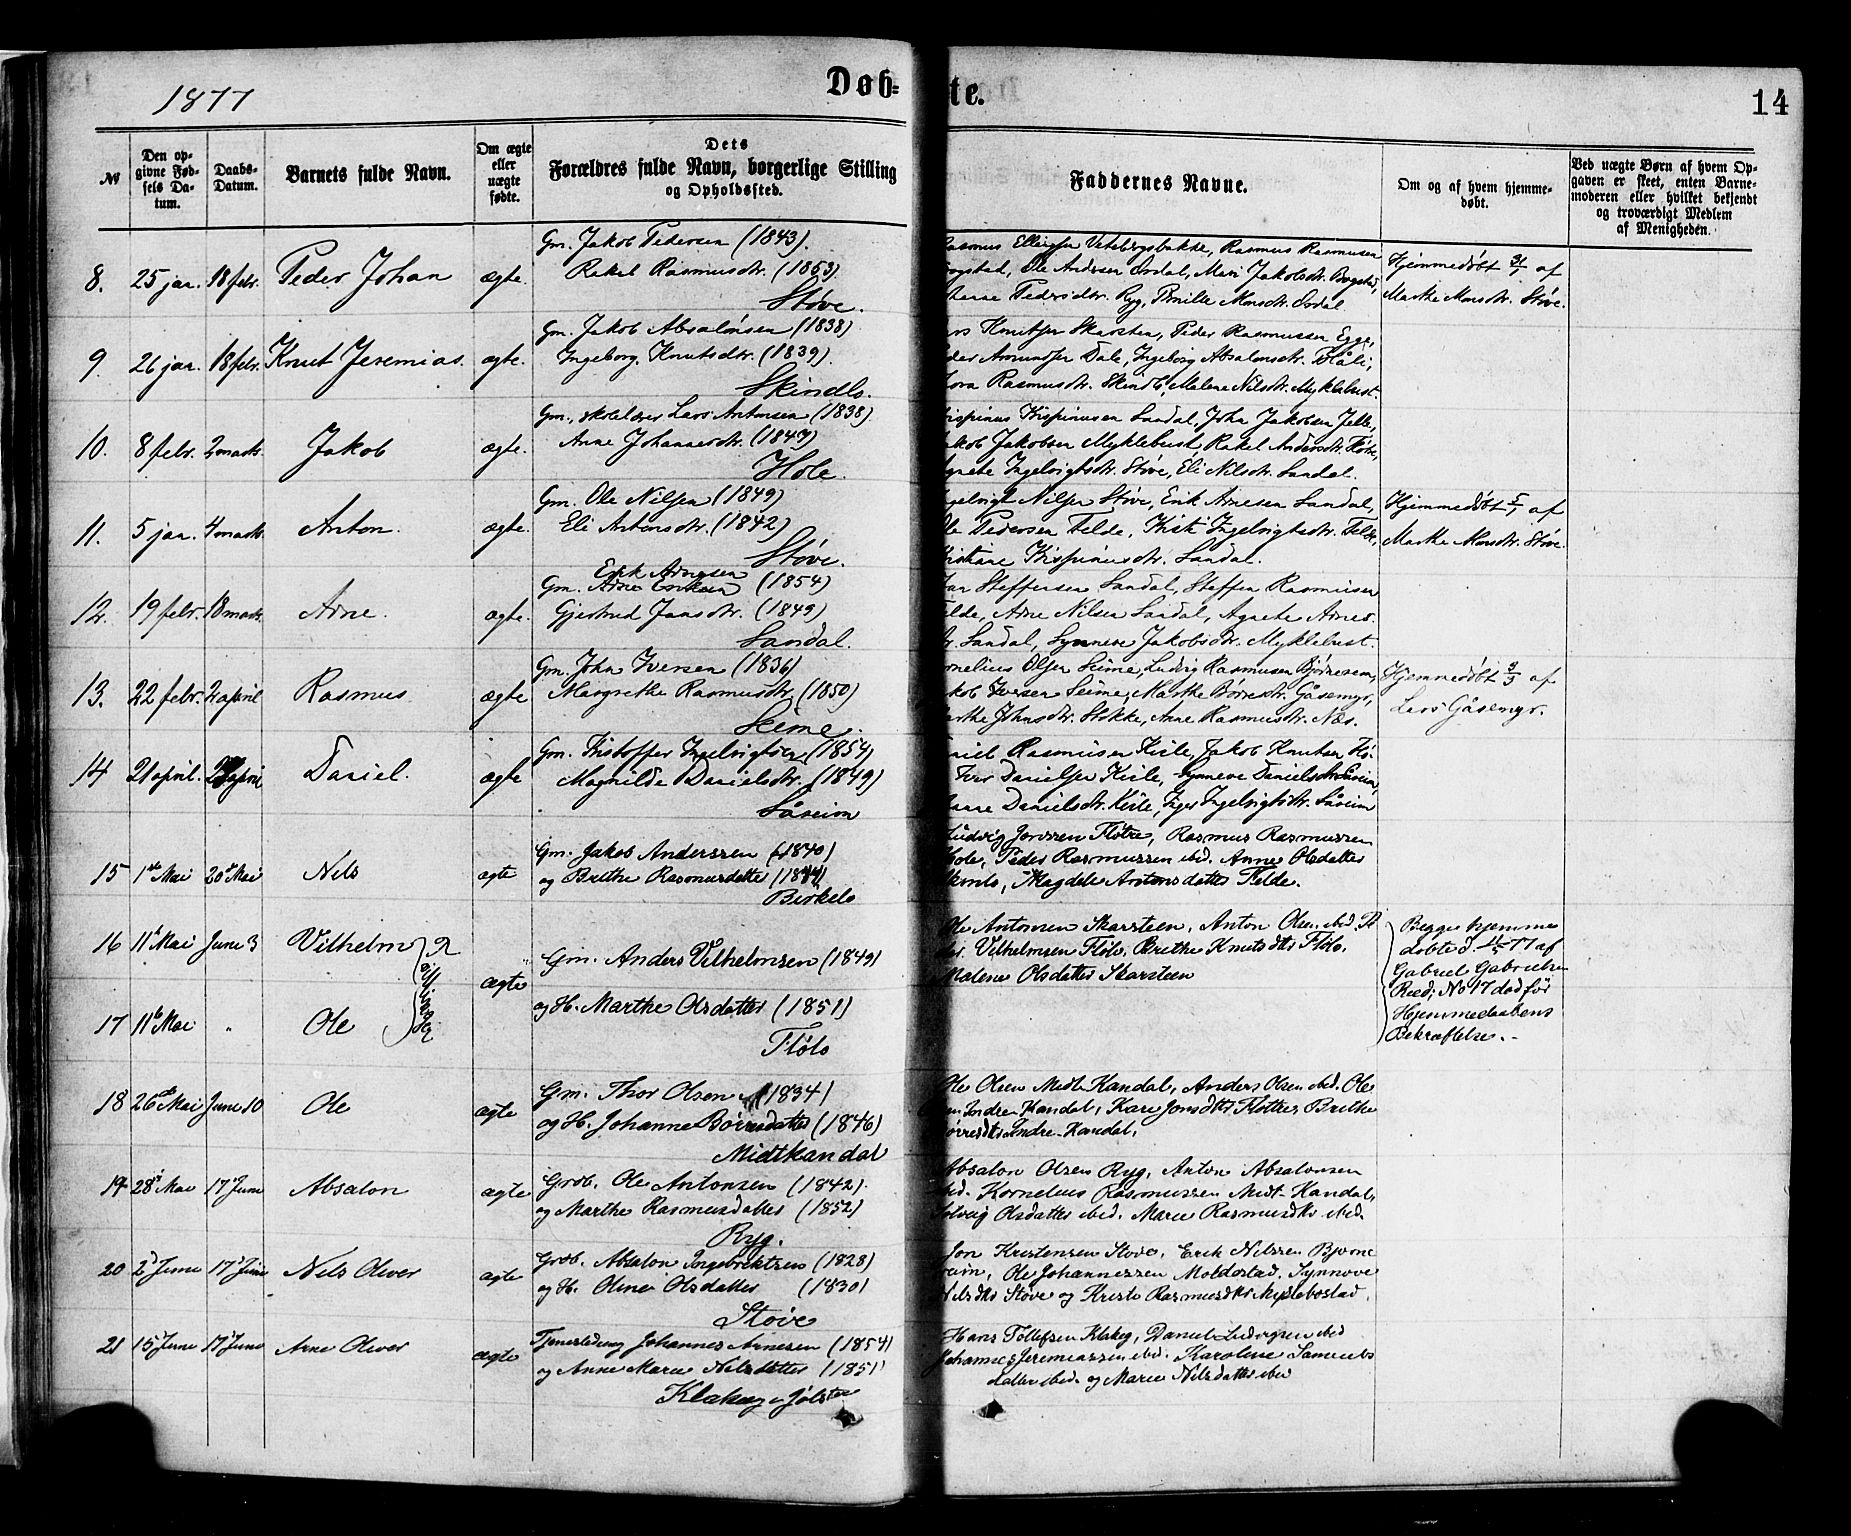 1877
Døb=
te.
14
№
Den op-
givne Fød-
sels Da-
tum.
Daabs-
Datum.
Barnets fulde Navn.
Om ægte
eller
uægte
fødte.
Dets
Forældres fulde Navn, borgerlige Stilling
og Opholdssted.
Faddernes Navne.
Om og af hvem hjemme-
døbt.
Ved uægte Børn af hvem Op-
gaven er skeet, enten Barne-
moderen eller hvilket bekjendt
og troværdigt Medlem
af Menigheden.
8. 25 jan. 18 febr. Peder Johan ægte.
Gm. Jakob Pedersen (1843).
Rakel Rasmusdtr. (1853)
Støve.
Rasmus Rasmusen
Ole Andersen Ordal, Mari Jakobsdtr. Bogstad,
Pedersdtr. Ryg, Pernille Monsdtr. Ordal
Hjemmedøbt 31/1 af
Marthe Monsdtr. Støve.
9. 26 jan. 18 febr. Knut Jeremias. ægte.
Gm. Jakob Absalonsen (1838)
Ingeborg Knutsdtr. (1839).
Skindlo.
Knutsen Skarsten, Peder Rasmussen Egge,
Amundsen Dale, Ingeborg Absalonsdtr.
Rasmusdtr. Skindlo, Malene Nilsdtr. Myklebust.
10. 8 febr. 2 marts. Jakob ægte.
Gm., skolelærer Lars Antonsen (1838).
Anne Johannesdtr. (1847)
Hole.
Krispinusen Sandal, John Jakobsen
Jakobsen Myklebust, Rakel Andersdtr.
Ingelvigtsdtr. Støve, Eli Nilsdtr. Sandal.
11. 5 jan. 4 marts. Anton. ægte.
Gm. Ole Nilsen (1849)
Eli Antonsdtr. (1842)
Støve.
Nilsen Støve, Erik Arnesen Sandal,
Pedersen Felde, Kristi Ingelvigtsdtr. Felde,
Krispinusdtr. Sandal.
Hjemmedøbt 5/1 af
Marthe Monsdtr. Støve.
12. 19 febr. 18 marts. Arne. ægte.
Erik Arnesen
Gm. Arne Eriksen (1854)
Gjertrud Jansdtr. (1849)
Sandal.
Steffensen Sandal, Steffen Rasmusen
Arne Nilsen Sandal, Agnete Arnes-
Sandal, Synneve Jakobsdtr. Myklebust.
13. 22 febr. 2 april Rasmus ægte
Gm. John Iversen (1836)
Margrethe Rasmusdtr. (1850)
Seime.
Olsen Seime, Ludvig Rasmusen
Iversen Seime, Marthe Børresdtr. Gåsemyr,
Johnsdtr. Stokke, Anne Rasmusdtr. Næs.
Hjemmedøbt 3/3 af
Lars Gåsemyr.
14 21 april. april Daniel. ægte
Gm. Kristoffer Ingelvigtsen (1854)
Magnilde Danielsdtr. (1849)
Såseim
Rasmusen Jakob Knutsen
Iver Danielsen Synneve Danielsdtr.
Danielsdtr. Inger Ingelvigtsdtr. Såseim
15 1ste Mai 20de Mai Nils ægte
Gm. Jakob Anderssen (1840)
og Brithe Rasmusdatter
Birkelo
Ludvig Fløtre, Rasmus Rasmussen
Hole, Peder Rasmussen ibid. Anne Olsdatter
Magdele Antonsdatter Felde.
16 11te Mai June 3 Vilhelm
17 11te Mai " Ole
Tvillinger
ægte
Gm. Anders Vilhelmsen (1849)
og H. Marthe Olsdatter (1851)
Flølo
Ole Antonsen Skarsteen, Anton Olsen ibid.
Vilhelmsen Flølo, Brithe Knutsdtr Flølo,
Malene Olsdatter Skarsteen
Begge hjemme
døbte d. 77 af
Gabriel Gabrielsen
Reed; No 17 død før
Hjemmedaabens
Bekræftelse.-
18 26de Mai June 10 Ole ægte
Gm. Thor Olsen (1834)
og H. Johanne Børresdatter (1846)
Midtkandal
Ole Olsen Medt Kandal, Anders Olsen ibid. Ole
Indre Kandal, Kari Jonsdtr Brithe
Indre-Kandal.
19 28de Mai 17 June Absalon ægte
Grdb. Ole Antonsen (1842).
og Marthe Rasmusdatter (1852)
Ryg.
Absalon Olsen Ryg, Anton Absalonsen
ibid. Kornelius Rasmussen Midt-Kandal,
Solveig Olsdatter ibid. Marie Rasmusdtr ibid.
20 2 June 17 June Nils Oliver ægte
Grdb. Absalon Ingebriktsen (1828)
og H. Oline Olsdatter (1830)
Støve
Jon Kristensen Støve, Erik Nilssen
Ole Johannessen Moldestad, Synnove
Nilsdtr Støve og Kristi Rasmusdtr Myklebostad.
21 15 June 17 June Arne Oliver ægte
Johannes Arnesen (1854)
og Anne Marie Nilsdatter (1851)
Klakeg i Jølster
Hans Tollefsen Klakeg, Daniel Ludvigsen ibid
Johannes Jeremiassen ibid. Karoline Samuels
datter ibid. og Marie Nilsdatter ibid